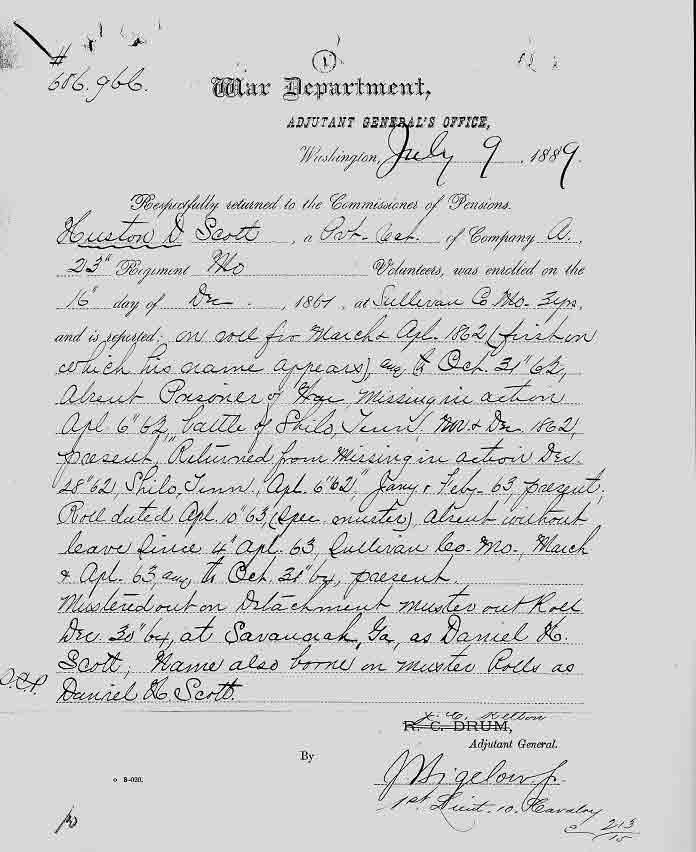 #
606.966.
1
War Department,
ADJUTANT GENERAL'S OFFICE,
Washington, July 9, 1889.
Respectfully returned to the Commissioner of Pensions.
Huston D Scott, a Pvt. Cap. of Company A.,
23" Regiment Mo Volunteers, was enrolled on the
16" day of Dec., 1861, at Sullivan Co Mo. 3 yrs.
and is reported: on roll for March & Apl. 1862 (first on
which his name appears), and to Oct. 31" 62,
Absent Prisoner of War, Missing in action
Apl. 6" 62, battle of Shilo, Tenn. Nov. & Dec 1862,
present, "Returned from Missing in action Dec.
28" 62, Shilo, Tenn., Apl. 6" 62," Jany & Feby. 63, present;
Roll dated Apl. 10" 63, (Spec. muster), absent without
leave since 4" Apl. 63, Sullivan Co. Mo., March
& Apl. 63, and to Oct 31" 64, present.
Mustered out on Detachment muster out Roll
Dec. 30" 64, at Savannah, Ga, as Daniel H.
Scott; Name also borne on muster Rolls as
Daniel H. Scott.
J. C. Kelton
R. C. DRUM,
Adjutant General.
By
J Bigelow Jr.
1st Lieut. 10. Cavalry
S-020.
213
15